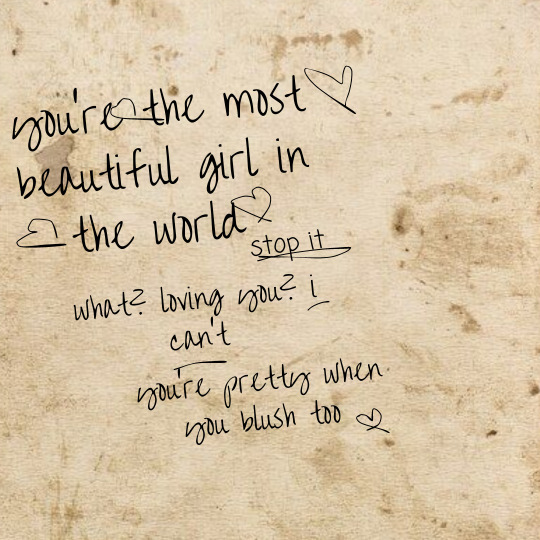 you're the most
beautiful girl in
the world
stop it
what? loving you? i
can't
you're pretty when
you blush too